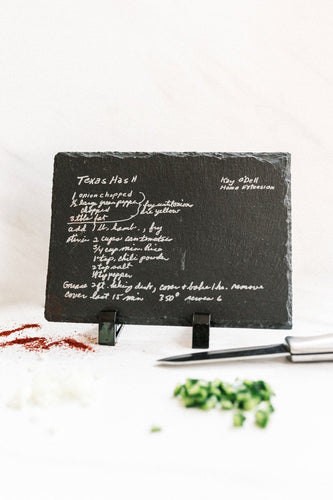 Texas Hash
Kay O'Dell
Home Extension
1 onion chopped
½ large green pepper
chopped
3 tbls fat
fry until onion
is yellow
add 1 lb. hamb., fry
stir in 2 cups can tomatoes
3/4 cup min rice
1 tsp. chili powder
2 tsp salt
1/8 tsp pepper
Grease 2 qt. baking dish, cover & bake 1 hr. remove
cover last 15 min 350° serves 6